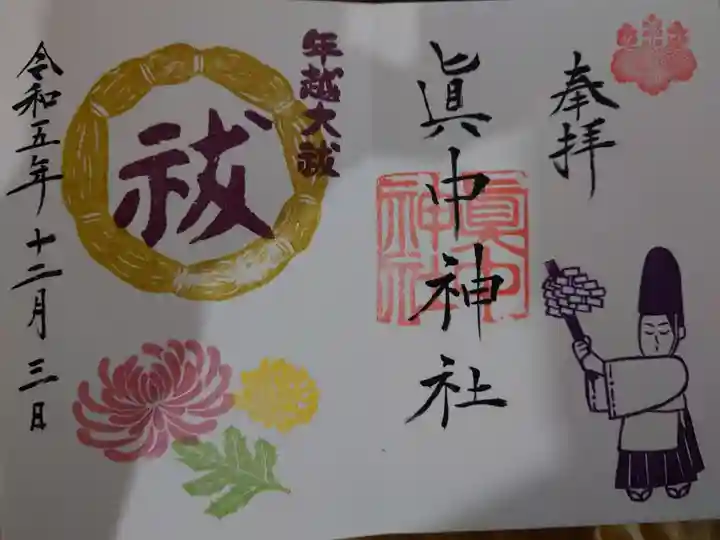 奉拝
眞中神社
眞中
神社
年越大祓
祓
令和五年十二月三日